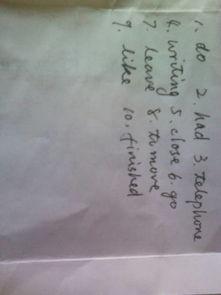 1. do 2. had 3. telephone
4. writing 5. close 6. go
7. leave 8. to move
9. like 10. finished